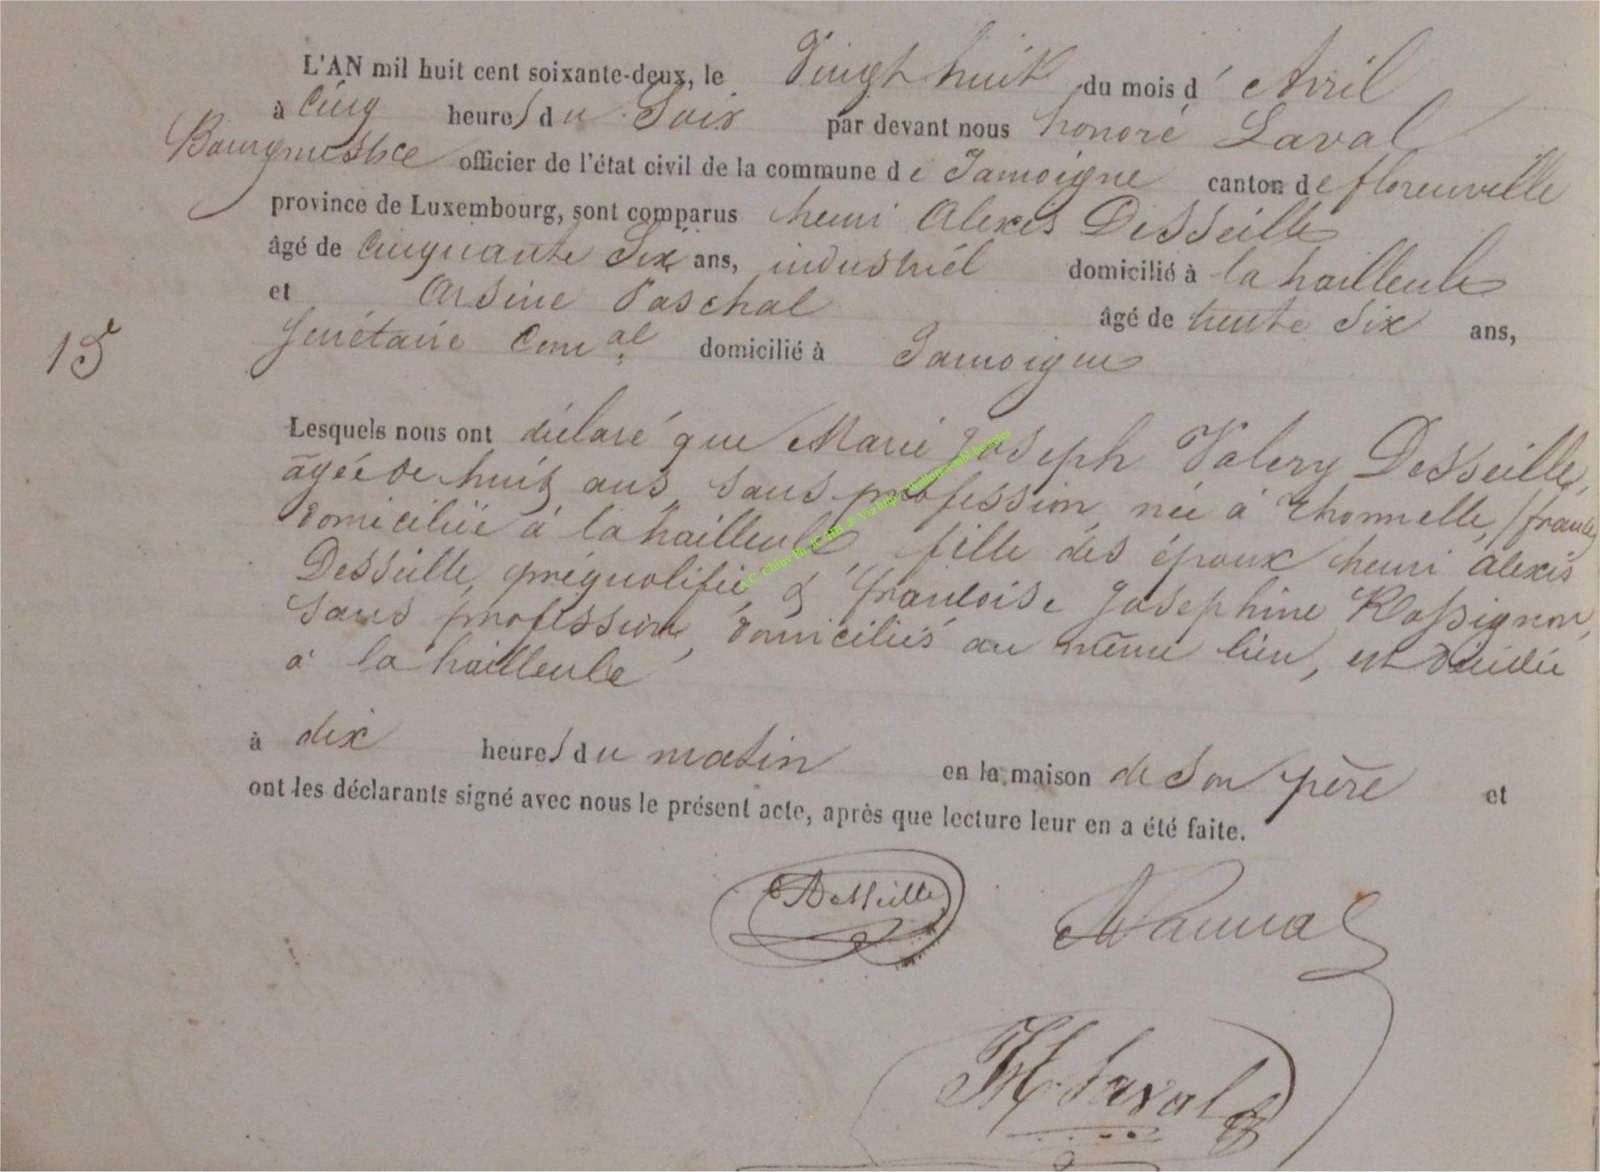 L'AN mil huit cent soixante-deux, le Vingt huit du mois d' Avril
à Cinq heures du Soir par devant nous honoré Laval
Bourgmestre officier de l'état civil de la commune de Jamoigne canton de florenville
province de Luxembourg, sont comparus henri Alexis Desseille
âgé de Cinquante Six ans, industriel domicilié à la hailleule
et Arsène Paschal âgé de trente Six ans,
Secrétaire Comal domicilié à Jamoigne
15
Lesquels nous ont déclaré que Marie Joseph Valery Desseille,
âgée de huit ans, Sans profession, née à Thonnelle, (france)
domiciliée à la hailleule, fille des époux henri alexis
Desseille, préqualifié, & françoise Josephine Rossignon,
Sans profession, domiciliés au même lieu, est décédée
à la hailleule
à dix heures du matin en la maison de Son père et
ont les déclarants signé avec nous le présent acte, après que lecture leur en a été faite.
Desseille
H Laval